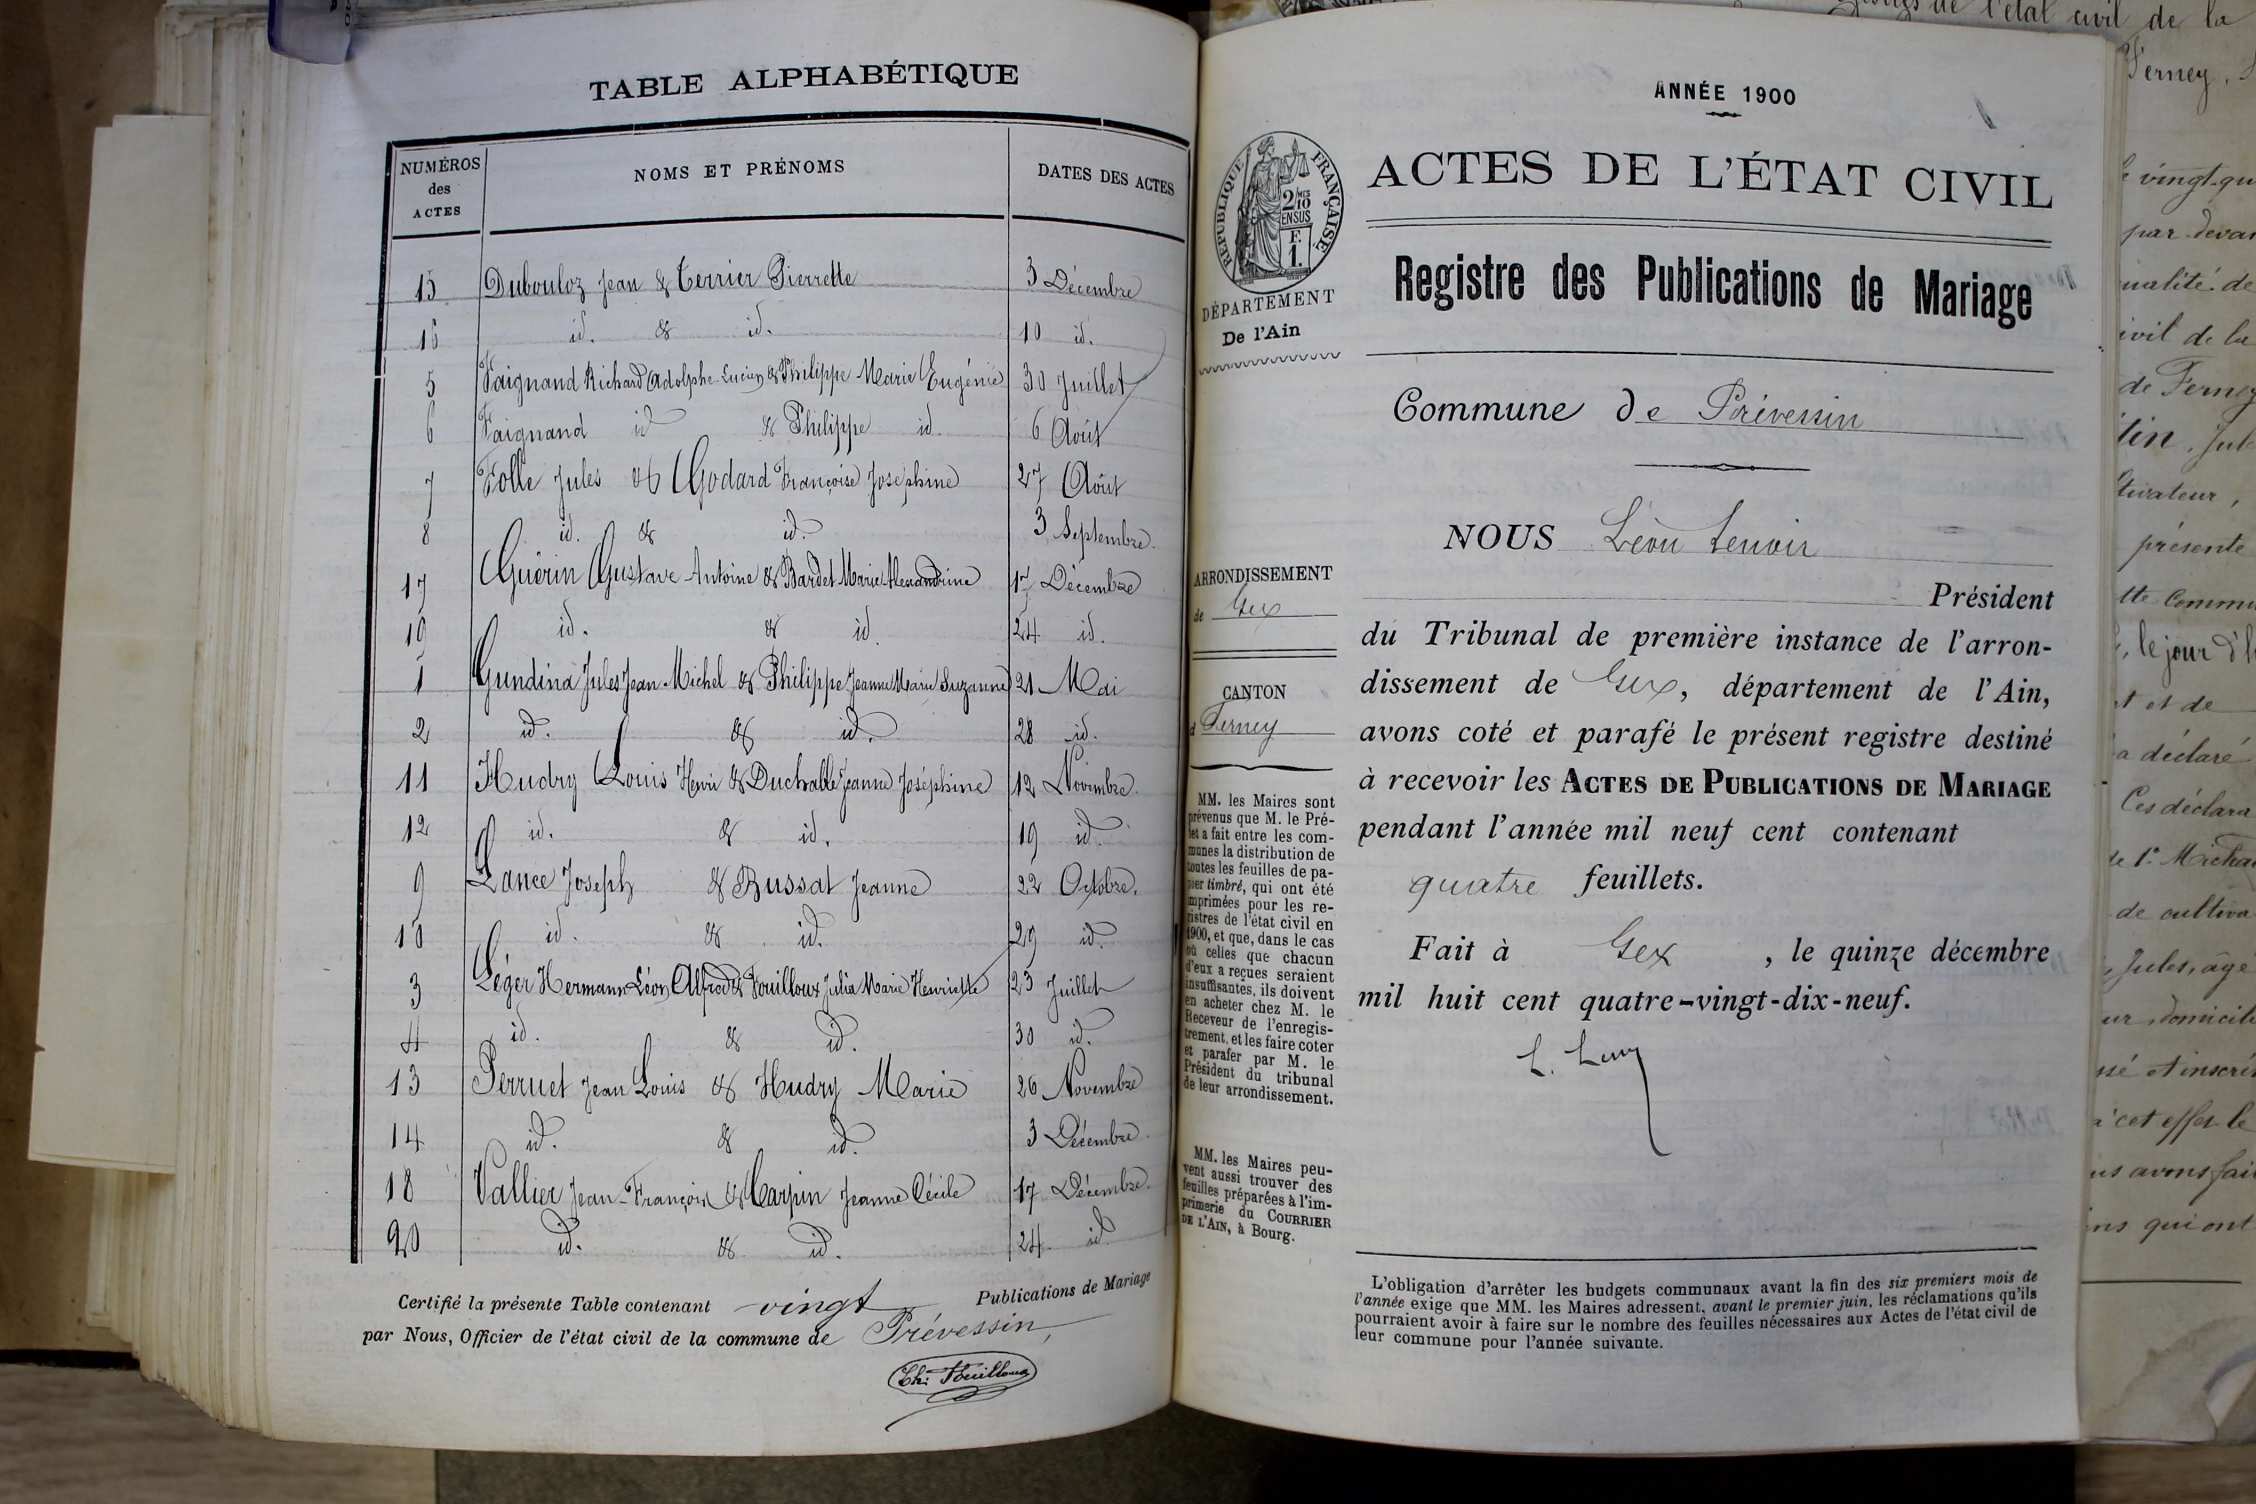 TABLE ALPHABÉTIQUE
NUMÉROS des ACTES
NOMS ET PRÉNOMS
DATES DES ACTES
15 Dubouloz Jean & Terrier Pierrette 3 Décembre
16 id. & id. 10 id.
5 Faignand Richard Adolphe Lucien & Philippe Marie Eugénie 30 Juillet
6 Faignand id & Philippe id 6 Août
7 Folle Jules & Godard Françoise Joséphine 27 Août
8 id. & id. 3 Septembre
17 Guérin Gustave Antoine & Bardet Marie Alexandrine 17 Décembre
19 id. & id. 24 id.
1 Gundina Jules Jean Michel & Philippe Jeanne Marie Suzanne 21 Mai
2 id. & id. 28 id.
11 Hudry Louis Henri & Duchable Jeanne Joséphine 12 Novembre
12 id. & id. 19 id.
9 Lance Joseph & Bussat Jeanne 22 Octobre.
10 id. & id. 29 id.
3 Léger Hermann Léon Alfred & Fouilloux Julia Marie Henriette 23 Juillet
4 id. & id. 30 id.
13 Perruet Jean Louis & Hudry Marie 26 Novembre
14 id. & id. 3 Décembre
18 Vallier Jean-François & Carpin Jeanne Cécile 17 Décembre
20 id. & id. 24 id
Certifié la présente Table contenant vingt Publications de Mariage
par Nous, Officier de l'état civil de la commune de Prévessin,
Th. Fouilloux
ANNÉE 1900
ACTES DE L'ÉTAT CIVIL
RÉPUBLIQUE FRANÇAISE
2/10 EN SUS
F. 1.
DÉPARTEMENT
De l'Ain
Registre des Publications de Mariage
Commune de Prévessin
NOUS Léon Lenoir
Président
du Tribunal de première instance de l'arron-
dissement de Gex, département de l'Ain,
avons coté et parafé le présent registre destiné
à recevoir les ACTES DE PUBLICATIONS DE MARIAGE
pendant l'année mil neuf cent contenant
quatre feuillets.
Fait à Gex, le quinze décembre
mil huit cent quatre-vingt-dix-neuf.
ARRONDISSEMENT
de Gex
CANTON
d Ferney
MM. les Maires sont
prévenus que M. le Pré-
fet a fait entre les com-
munes la distribution de
toutes les feuilles de pa-
pier timbré, qui ont été
imprimées pour les re-
gistres de l'état civil en
1900, et que, dans le cas
où celles que chacun
d'eux a reçues seraient
insuffisantes, ils doivent
en acheter chez M. le
Receveur de l'enregis-
trement, et les faire coter
et parafer par M. le
Président du tribunal
de leur arrondissement.
MM. les Maires peu-
vent aussi trouver des
feuilles préparées à l'im-
primerie du COURRIER
DE L'AIN, à Bourg.
L'obligation d'arrêter les budgets communaux avant la fin des six premiers mois de
l'année exige que MM. les Maires adressent, avant le premier juin, les réclamations qu'ils
pourraient avoir à faire sur le nombre des feuilles nécessaires aux Actes de l'état civil de
leur commune pour l'année suivante.
de l'état civil de la
Ferney,
vingt-qu
par devan
nalité de
ivil de la
de Ferney
tin, Jul
ltivateur,
présente
tte commu
le jour d'h
t et de
a déclaré
Ces déclara
de cultiva
Jules, âgé
ur, domicilié
ssé et inscri
à cet effet le
us avons fai
ns qui ont